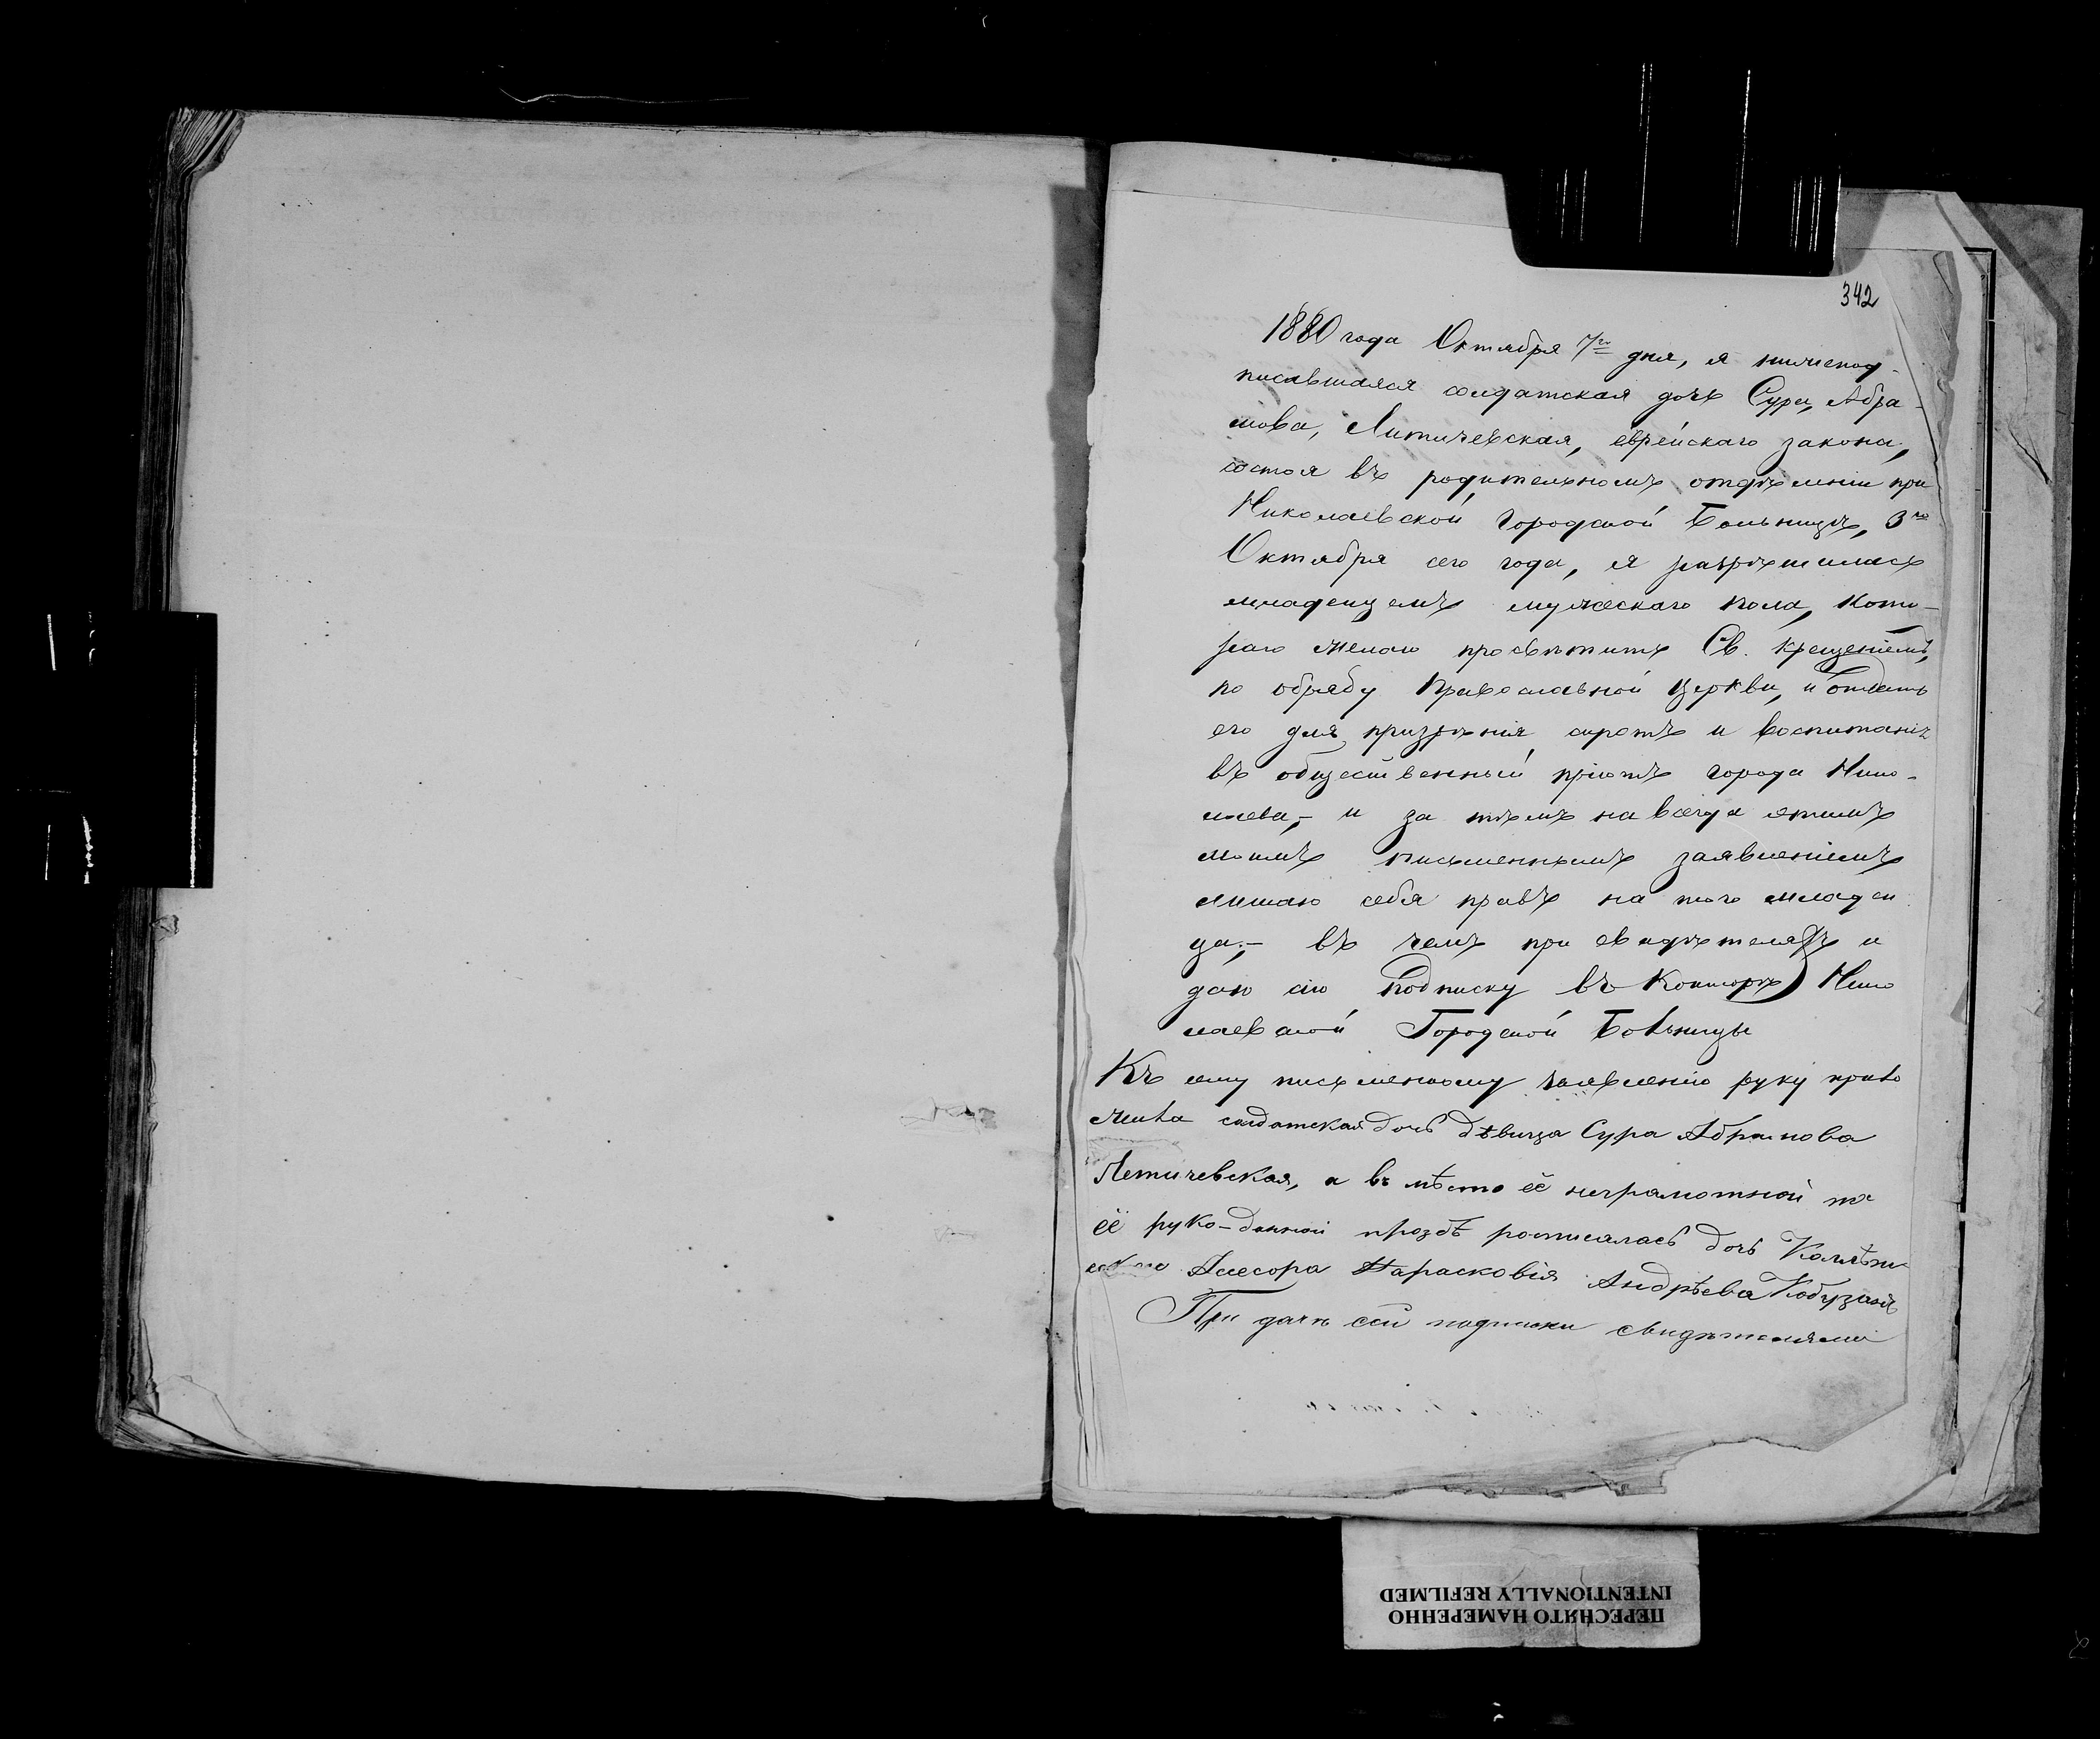 342
1880 года Октября 7го дня, я нижепод-
писавшаяся солдатская дочь Сура, Абра-
мова, Литичевская, еврейскаго закона,
состоя въ родительномъ отдѣленіи при
Николаевской Городской Больницѣ, 3го
Октября сего года, я разрѣшилась
младенцемъ мужескаго пола, кото-
раго желаю просвѣтить Св. Крещеніемъ,
по обряду Православной Церкви, и отдать
его для призрѣнія сиротъ и воспитанія
въ общественный пріютъ города Нико-
лаева,- и за тѣмъ на всегда этимъ
моимъ письменнымъ заявленіемъ
лишаю себя правъ на того младен
ца;- въ чемъ при свидѣтеляхъ и
даю сію подписку въ Конторѣ Нико
лаевской Городской Больницы
Къ сему письменному заявленію руку прило
жила солдатская дочь дѣвица Сура Абрамова
Летичевская, а въ мѣсто её неграмотной по
её руко-данной прозбѣ росписалась дочь Колѣж
скаго Асесора Парасковія Андрѣева
При дачѣ сей подписки свидѣтелями
ПЕРЕСНЯТО НАМЕРЕННО
INTENTIONALLY REFILMED